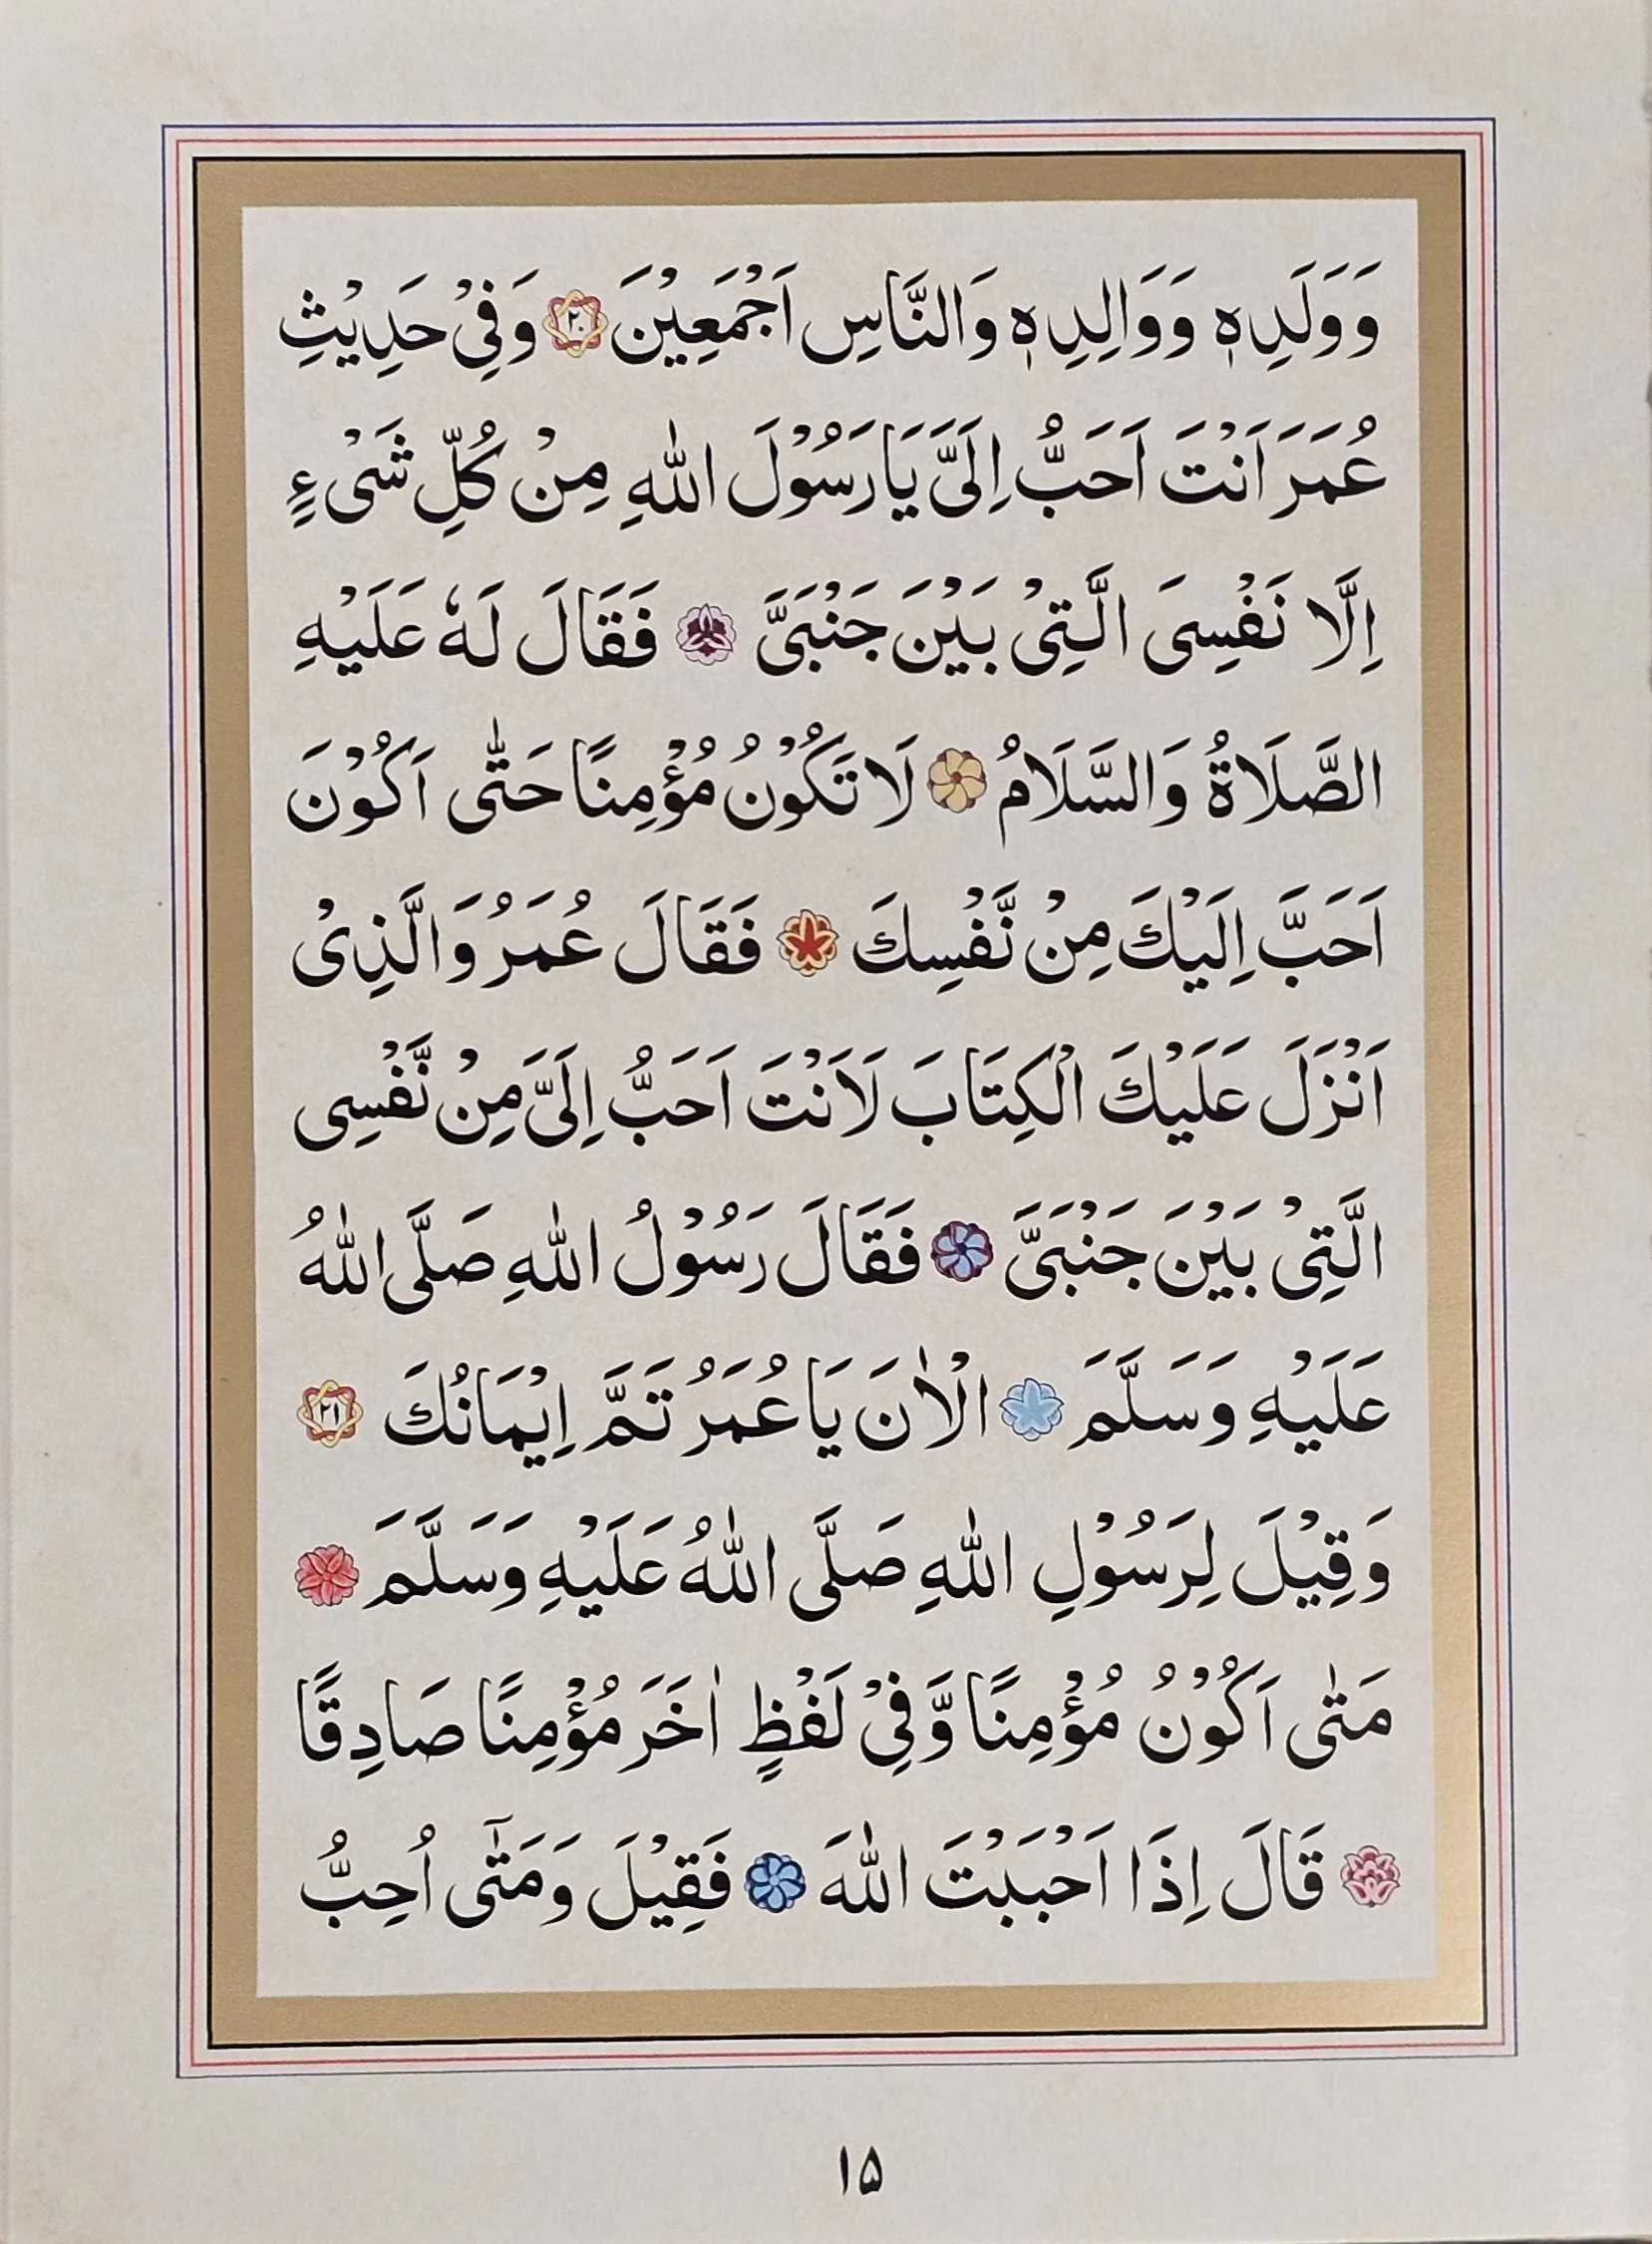 وَوَلَدِهٖ وَوَالِدِهٖ وَالنَّاسِ اَجْمَعِيْنَ ٢٠ وَفِيْ حَدِيْثِ
عُمَرَ اَنْتَ اَحَبُّ اِلَيَّ يَارَسُوْلَ اللّٰهِ مِنْ كُلِّ شَیْءٍ
اِلَّا نَفْسِی الَّتِیْ بَيْنَ جَنْبَیَّ فَقَالَ لَهٗ عَلَيْهِ
الصَّلَاةُ وَالسَّلَامُ لَا تَكُوْنُ مُؤْمِنًا حَتّٰی اَكُوْنَ
اَحَبَّ اِلَيْكَ مِنْ نَّفْسِكَ فَقَالَ عُمَرُ وَالَّذِیْ
اَنْزَلَ عَلَيْكَ الْكِتَابَ لَاَنْتَ اَحَبُّ اِلَیَّ مِنْ نَّفْسِی
الَّتِیْ بَيْنَ جَنْبَیَّ فَقَالَ رَسُوْلُ اللّٰهِ صَلَّی اللّٰهُ
عَلَيْهِ وَسَلَّمَ الْاٰنَ يَا عُمَرُ تَمَّ اِيْمَانُكَ ٢١
وَقِيْلَ لِرَسُوْلِ اللّٰهِ صَلَّی اللّٰهُ عَلَيْهِ وَسَلَّمَ
مَتٰی اَكُوْنُ مُؤْمِنًا وَّفِیْ لَفْظٍ اٰخَرَ مُؤْمِنًا صَادِقًا
قَالَ اِذَا اَحْبَبْتَ اللّٰهَ فَقِيْلَ وَمَتٰٓی اُحِبُّ
۱۵